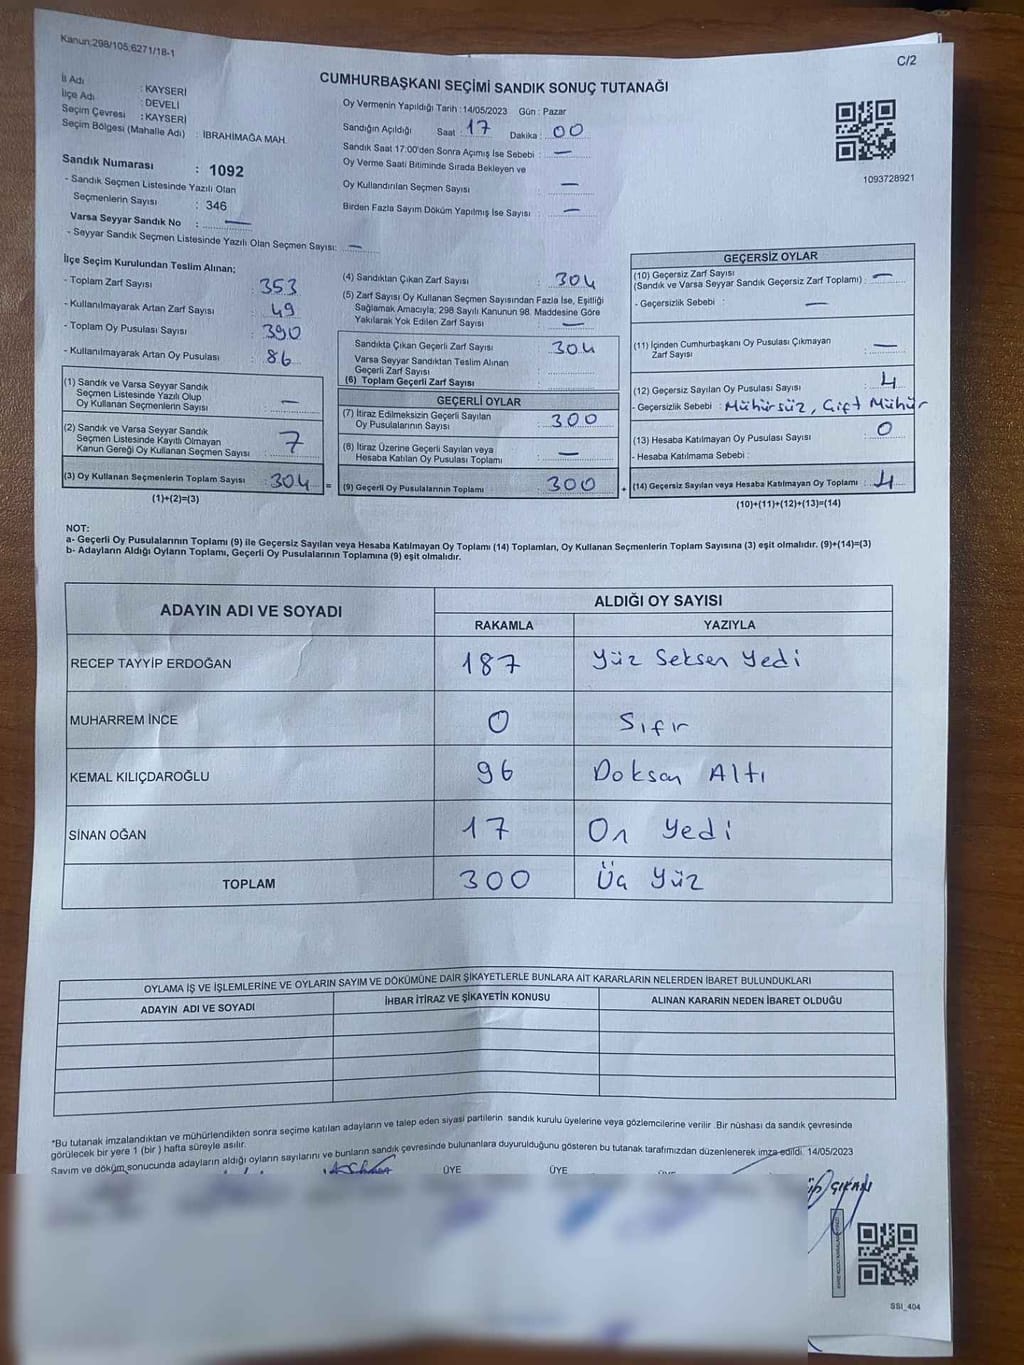 Kanun;298/105;6271/18-1
C/2
CUMHURBAŞKANI SEÇİMİ SANDIK SONUÇ TUTANAĞI
İl Adı : KAYSERİ
İlçe Adı : DEVELİ
Seçim Çevresi : KAYSERİ
Seçim Bölgesi (Mahalle Adı) : İBRAHİMAĞA MAH.
Sandık Numarası : 1092
- Sandık Seçmen Listesinde Yazılı Olan
Seçmenlerin Sayısı : 346
Varsa Seyyar Sandık No : —
- Seyyar Sandık Seçmen Listesinde Yazılı Olan Seçmen Sayısı: —
Oy Vermenin Yapıldığı Tarih :14/05/2023 Gün : Pazar
Sandığın Açıldığı Saat : 17 Dakika : 00
Sandık Saat 17:00'den Sonra Açımış İse Sebebi : —
Oy Verme Saati Bitiminde Sırada Bekleyen ve
Oy Kullandırılan Seçmen Sayısı : —
Birden Fazla Sayım Döküm Yapılmış İse Sayısı : —
1093728921
İlçe Seçim Kurulundan Teslim Alınan;
- Toplam Zarf Sayısı : 353
- Kullanılmayarak Artan Zarf Sayısı : 49
- Toplam Oy Pusulası Sayısı : 390
- Kullanılmayarak Artan Oy Pusulası : 86
(1) Sandık ve Varsa Seyyar Sandık
Seçmen Listesinde Yazılı Olup
Oy Kullanan Seçmenlerin Sayısı : —
(2) Sandık ve Varsa Seyyar Sandık
Seçmen Listesinde Kayıtlı Olmayan
Kanun Gereği Oy Kullanan Seçmen Sayısı : 7
(3) Oy Kullanan Seçmenlerin Toplam Sayısı : 304 =
(1)+(2)=(3)
(4) Sandıktan Çıkan Zarf Sayısı : 304
(5) Zarf Sayısı Oy Kullanan Seçmen Sayısından Fazla İse, Eşitliği
Sağlamak Amacıyla; 298 Sayılı Kanunun 98. Maddesine Göre
Yakılarak Yok Edilen Zarf Sayısı : —
Sandıkta Çıkan Geçerli Zarf Sayısı : 304
Varsa Seyyar Sandıktan Teslim Alınan
Geçerli Zarf Sayısı :
(6) Toplam Geçerli Zarf Sayısı
GEÇERLİ OYLAR
(7) İtiraz Edilmeksizin Geçerli Sayılan
Oy Pusulalarının Sayısı : 300
(8) İtiraz Üzerine Geçerli Sayılan veya
Hesaba Katılan Oy Pusulası Toplamı : —
(9) Geçerli Oy Pusulalarının Toplamı : 300 +
GEÇERSİZ OYLAR
(10) Geçersiz Zarf Sayısı
(Sandık ve Varsa Seyyar Sandık Geçersiz Zarf Toplamı) : —
- Geçersizlik Sebebi : —
(11) İçinden Cumhurbaşkanı Oy Pusulası Çıkmayan
Zarf Sayısı : —
(12) Geçersiz Sayılan Oy Pusulası Sayısı : 4
- Geçersizlik Sebebi : Mühürsüz, Çift Mühür
(13) Hesaba Katılmayan Oy Pusulası Sayısı : 0
- Hesaba Katılmama Sebebi :
(14) Geçersiz Sayılan veya Hesaba Katılmayan Oy Toplamı : 4
(10)+(11)+(12)+(13)=(14)
NOT:
a- Geçerli Oy Pusulalarının Toplamı (9) ile Geçersiz Sayılan veya Hesaba Katılmayan Oy Toplamı (14) Toplamları, Oy Kullanan Seçmenlerin Toplam Sayısına (3) eşit olmalıdır. (9)+(14)=(3)
b- Adayların Aldığı Oyların Toplamı, Geçerli Oy Pusulalarının Toplamına (9) eşit olmalıdır.
ADAYIN ADI VE SOYADI ALDIĞI OY SAYISI
RAKAMLA YAZIYLA
RECEP TAYYİP ERDOĞAN 187 Yüz Seksen Yedi
MUHARREM İNCE 0 Sıfır
KEMAL KILIÇDAROĞLU 96 Doksan Altı
SİNAN OĞAN 17 On Yedi
TOPLAM 300 Üç Yüz
OYLAMA İŞ VE İŞLEMLERİNE VE OYLARIN SAYIM VE DÖKÜMÜNE DAİR ŞİKAYETLERLE BUNLARA AİT KARARLARIN NELERDEN İBARET BULUNDUKLARI
ADAYIN ADI VE SOYADI İHBAR İTİRAZ VE ŞİKAYETİN KONUSU ALINAN KARARIN NEDEN İBARET OLDUĞU
*Bu tutanak imzalandıktan ve mühürlendikten sonra seçime katılan adayların ve talep eden siyasi partilerin sandık kurulu üyelerine veya gözlemcilerine verilir .Bir nüshası da sandık çevresinde
görülecek bir yere 1 (bir ) hafta süreyle asılır.
Sayım ve döküm sonucunda adayların aldığı oyların sayılarını ve bunların sandık çevresinde bulunanlara duyurulduğunu gösteren bu tutanak tarafımızdan düzenlenerek imza edildi. 14/05/2023
ÜYE ÜYE
SSI_404